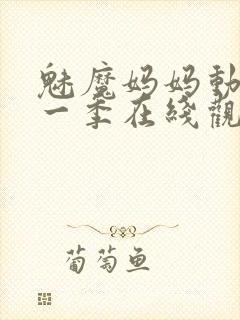 魅魔妈妈動
一季在綫觀
葡萄鱼